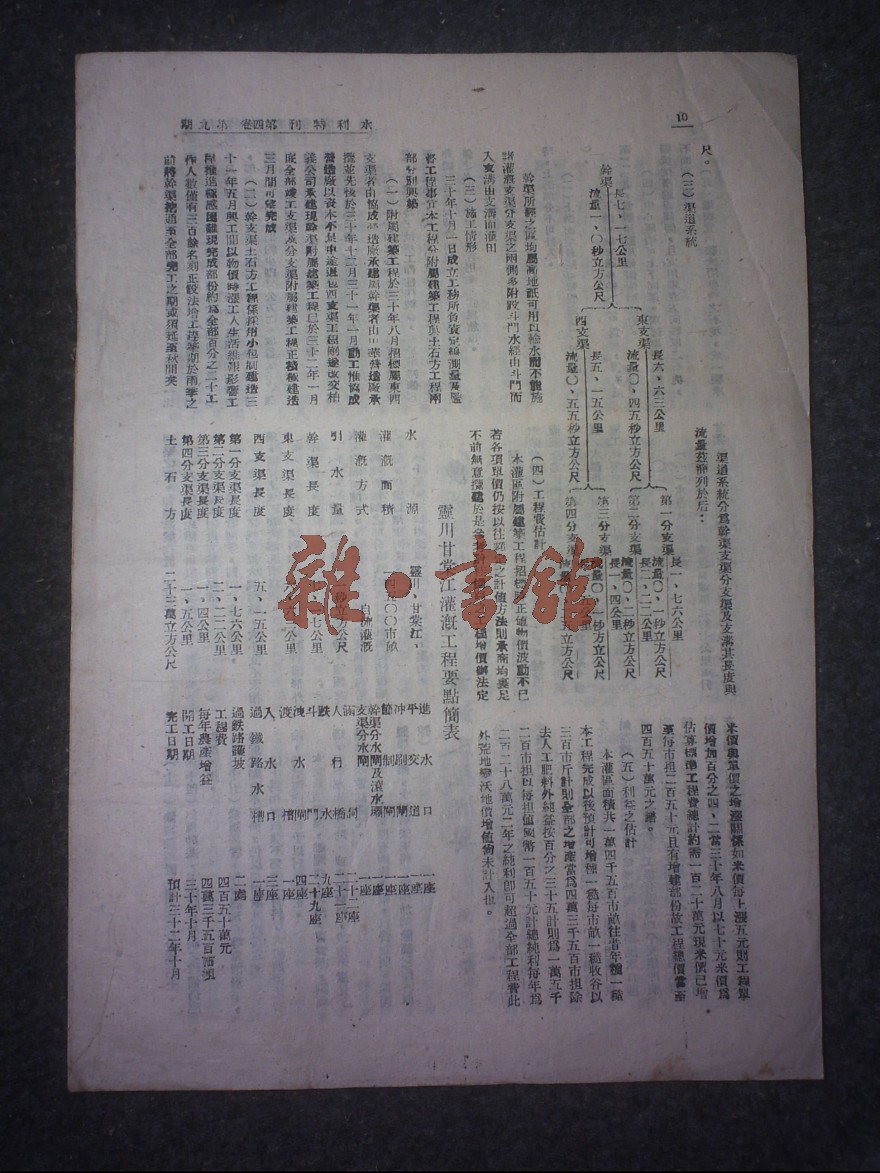 水利特刊第四卷第九期
10
尺。
(二)渠道系統
渠道系統分為幹渠支渠分支渠及支溝其長度與
流量茲
列於后：
幹渠
長七、一七公里
流量一、〇秒立方公尺
東支渠
長六、六三公里
流量〇、四五秒立方公尺
西支渠
長五、一五公里
流量〇、五五秒立方公尺
第一分支渠
長一、七六公里
流量〇、一秒立方公尺
第二分支渠
長二、二二公里
流量〇、二秒立方公尺
第三分支渠
長一、四公里
第四分支渠
幹渠所經之區均屬高地祇可用以輸水而不能施
諸灌溉支渠分支渠之兩側多附設斗門水經由斗門而
入支溝由支溝而灌田
(三)施工情形
三十年十月一日成立工務所負責定線測量及監
督工程事宜本工程分附屬建築工程與土石方工程兩
部分別興築
(一)附屬建築工程於三十年八月招標屬東西
支渠者由協成營造廠承建屬幹渠者由
營造廠承
攬並先後於三十年十二月三十一年一月動工惟協成
營造廠以資本不足中途退包西支渠工程
改交柏
義公司承建現幹渠附屬建築工程已於三十二年一月
底全部竣工支渠及分支渠附屬建築工程正積極建造
三月間可望完成
(二)幹支渠土石方工程係採用小包制建造三
十一年五月興工間以物價時漲工人生活維艱影響工
程推進極感困難現完成部份約為全部百分之三十工
作人數僅有三百餘名刻正設法增工趕築期於雨季之
前將幹渠挖通至全部完工之期或須延至秋間矣
(四)工程費估計
本灌區附屬建築工程招標時正值物價波動不已
若各項單價仍按以往
之計值方法則承商均裹足
不前無意攬建於是
工程增價辦法定
米價與單價之增漲關係如米價每上漲五元則工程單
價增加百分之四、二當三十年八月以七十元米價為
估算標準工程費總計約需一百二十萬元現米價已增
至每市担二百五十元且有增建部份故工程總價當至
四百五十萬元之譜。
(五)利益之估計
本灌區面積共一萬四千五百市畝往昔年種一糙
本工程完成以後預計可增種一糙每市畝一糙收谷以
三百市斤計則全部之增產當為四萬三千五百市担除
去人工肥料外純益按百分之三十五計則為一萬五千
二百市担以每担值國幣一百五十元計總純利每年為
二百二十八萬元二年之純利即可超過全部工程費此
外荒地變沃地價增值尚未計入也。
靈川甘棠江灌溉工程要點簡表
水源 靈川、甘棠江、
灌溉面積 一四五〇〇市畝
灌溉方式 自流灌溉
引水量 一秒立方公尺
幹渠長度 七公里
東支渠長度 公里
西支渠長度 五、一五公里
第一分支渠長度 一、七六公里
第二分支渠長度 二、二二公里
第三分支渠長度 一、四公里
第四分支渠長度 一、五公里
土石方 二十三萬立方公尺
進水口 一座
平交道 一座
冲刷閘 一座
節制閘 一座
幹渠分水閘及滾水壩 一座
支渠分水閘 二座
涵洞 二十二座
人行橋 二十一座
跌水 九座
斗門 二十九座
洩水閘 四座
渡槽 一座
入水口 三座
過鐵路水槽 一座
過鉄路護坡 二處
工程費 四百五十萬元
每年農產增益 四萬三千五百市担
開工日期 三十年十月
完工日期 預計三十二年十月
雜·書館